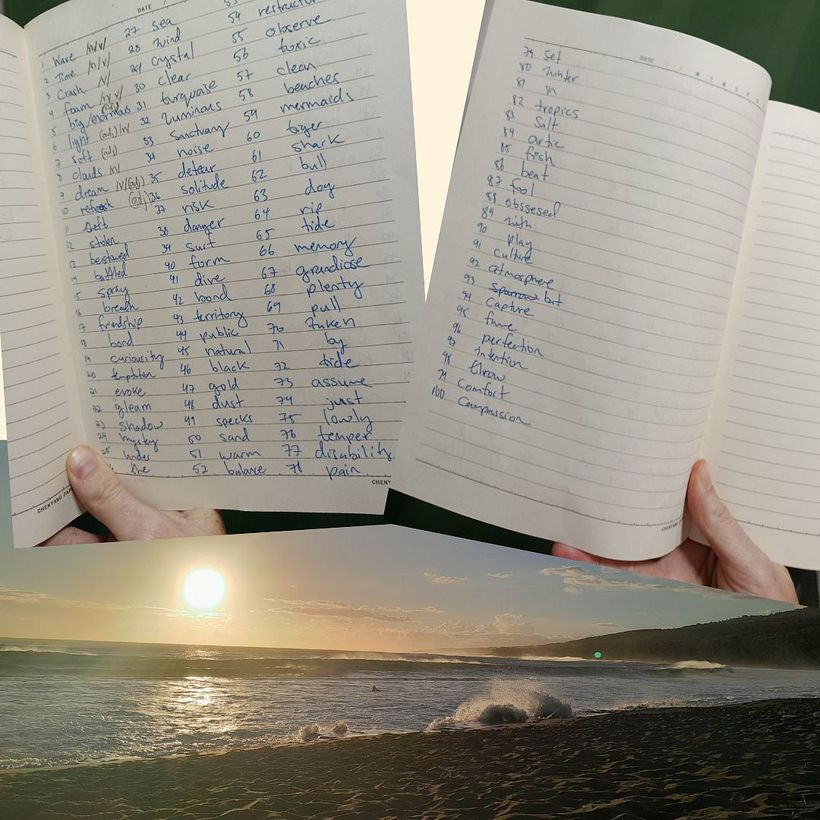 DATE
1 Wave /n/v/
2 Time /n/v/
3 Crash /v/
4 foam /n/v/
5 big/enormous
6 light (adj)/n/
7 soft (adj)
8 clouds /n/
9 dream /v/(adj)
10 refresh (adj)
11 Soft
12 stolen
13 bestowed
14 bottled
15 spray
16 breath
17 friendship
18 bond
19 curiousity
20 temptation
21 evoke
22 gleam
23 shadow
24 mystery
25
27 sea
28 wind
29 crystal
30 clear
31 turquoise
32 luminous
33 Sanctuary
34 noise
35 detour
36 solitude
37 risk
38 danger
39 surf
40 form
41 dive
42 bond
43 territory
44 public
45 natural
46 black
47 gold
48 dust
49 specks
50 sand
51 warm
52 balance
53
54
55 observe
56 toxic
57 clean
58 beaches
59 mermaids
60 tiger
61 shark
62 bull
63 dog
64 rip
65 tide
66 memory
67 grandiose
68 plenty
69 pull
70 taken
71 by
72 tide
73 assume
74 just
75 lowly
76 temper
77 disability
78 pain
CHENYANG PAP
CHEN
DATE M T W T F S
79 set
80 winter
81 in
82 tropics
83 Salt
84 artic
85 fish
86 beat
87 fool
88 obssesed
89 with
90 play
91 culture
92 atmosphere
93 Sparrow but
94 capture
95 fame
96 perfection
97 intention
98 throw
99 Comfort
100 Compassion
CHENYANG PA